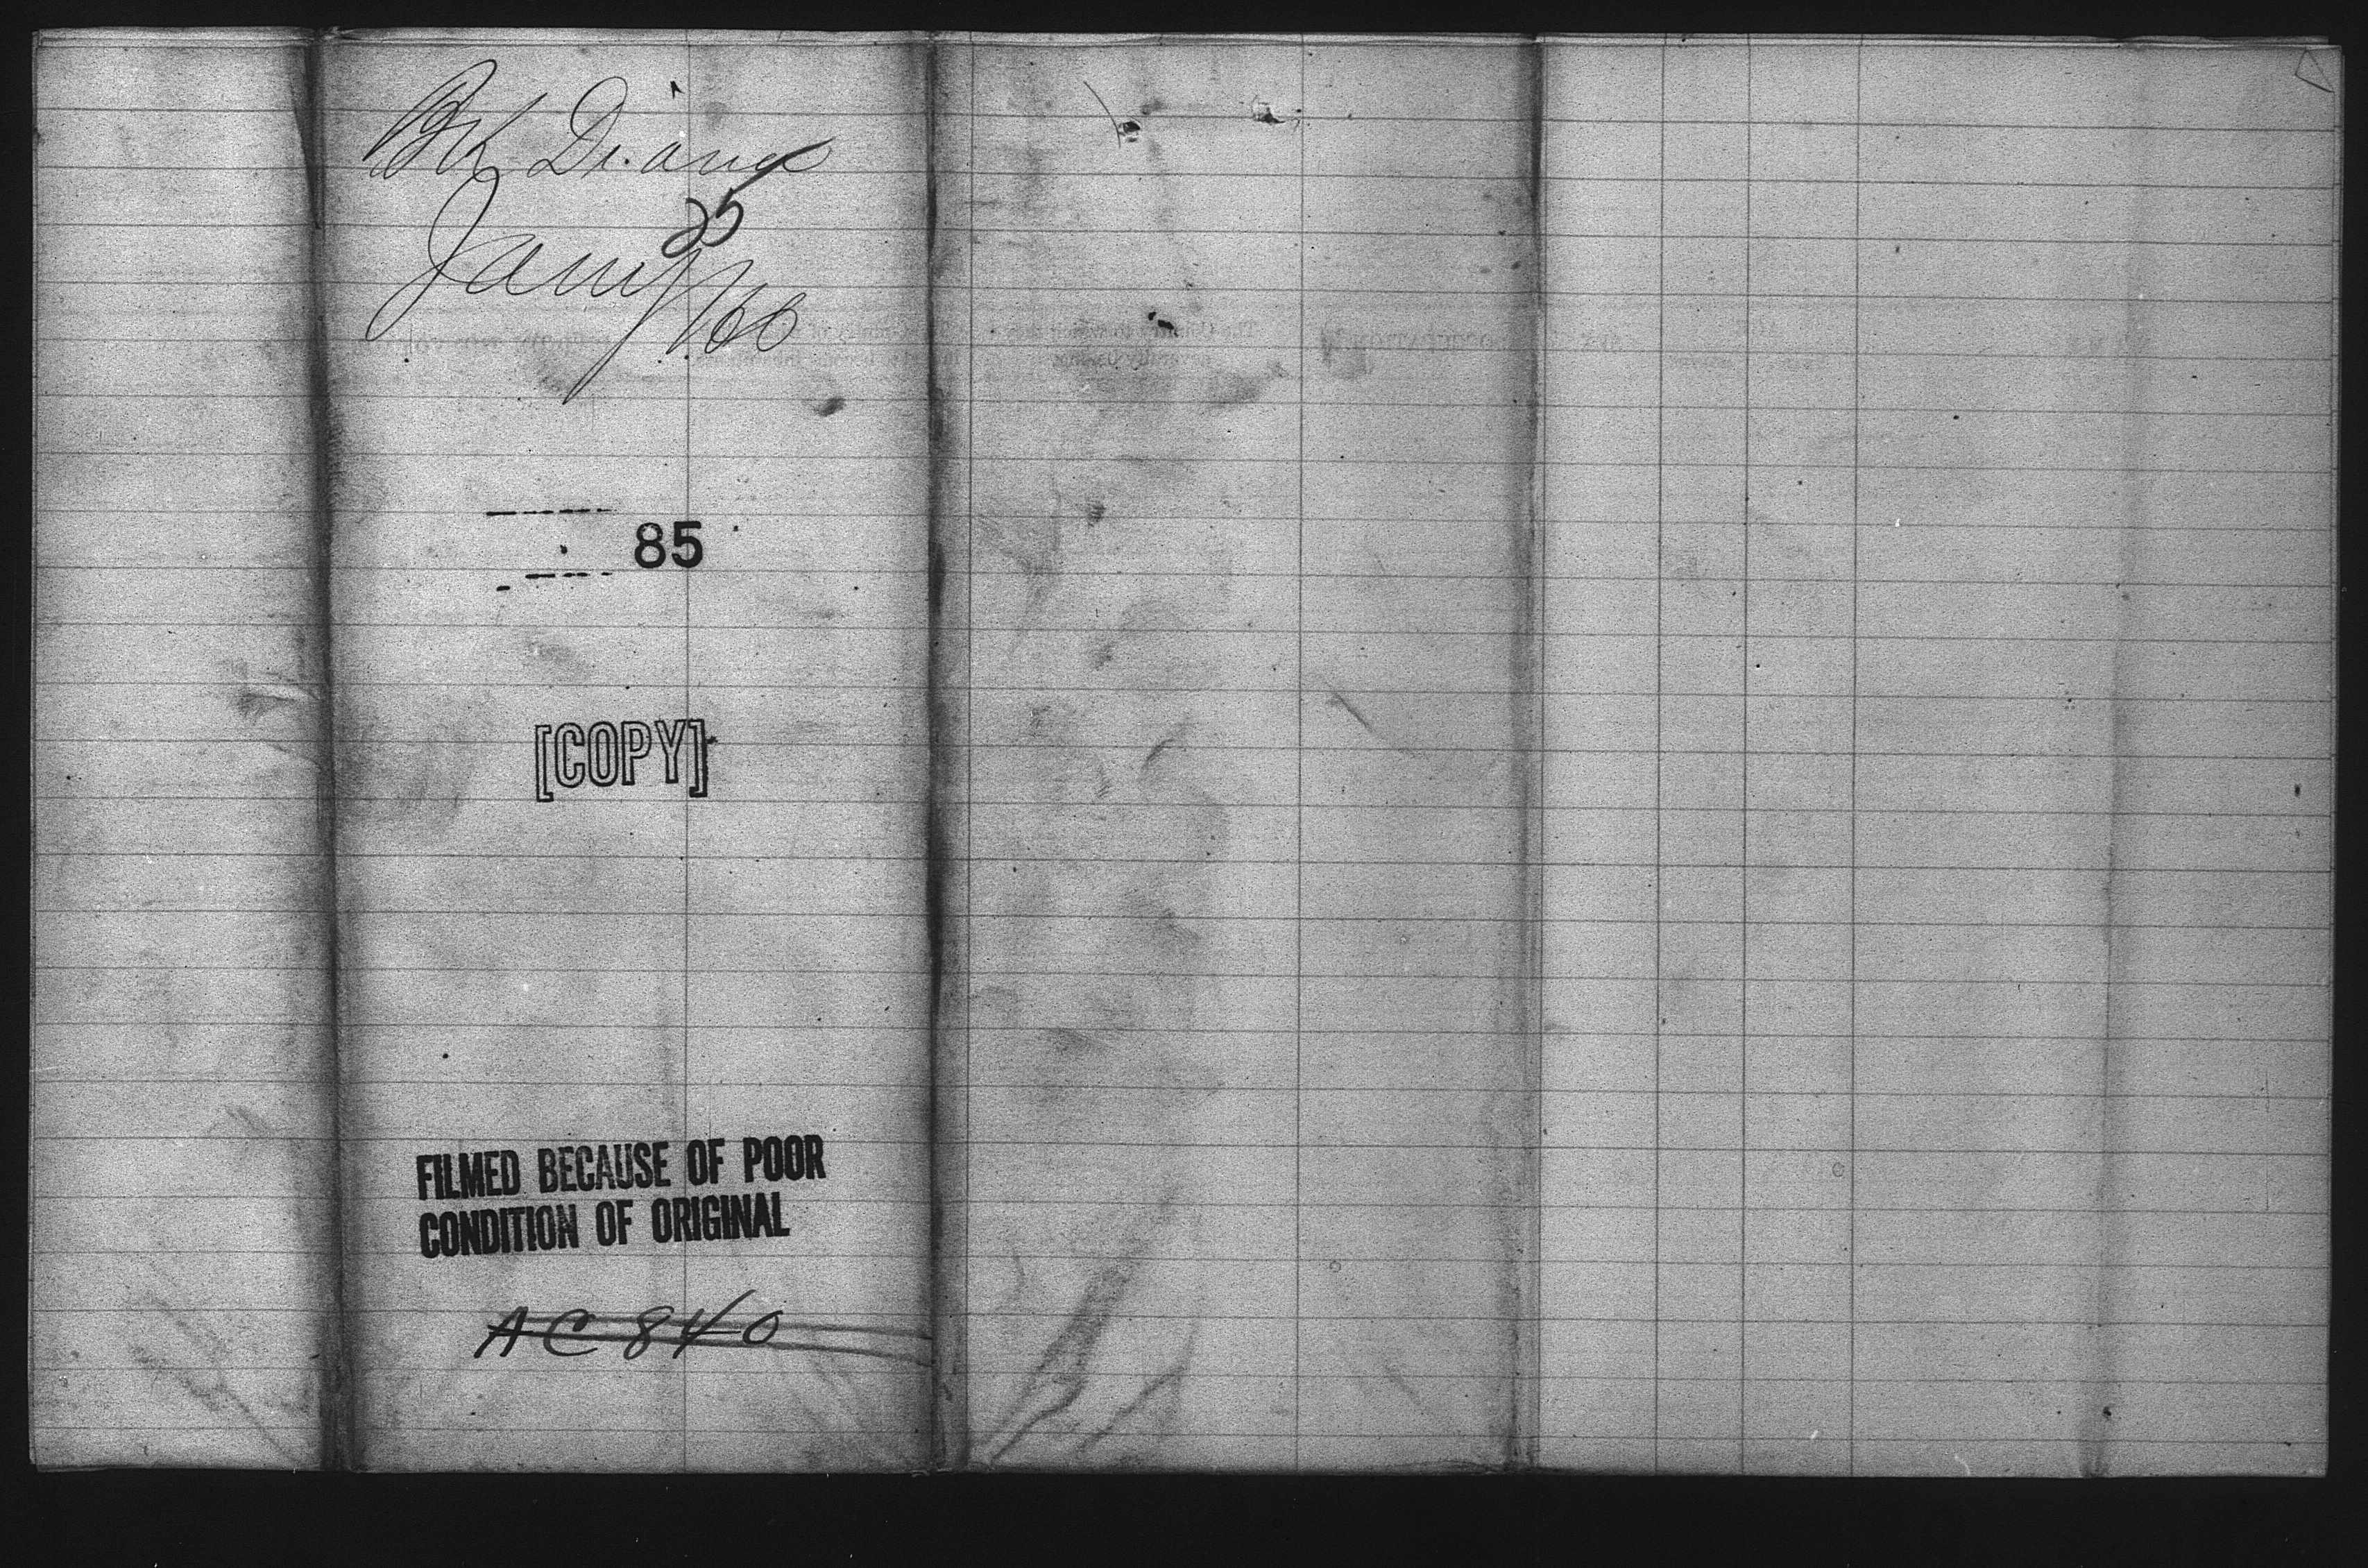 Bk Diana
25
Jany /66
85
[COPY]
FILMED BECAUSE OF POOR
CONDITION OF ORIGINAL
AC 840